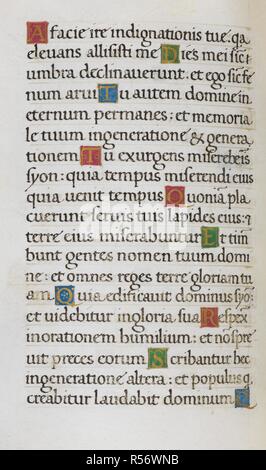 A facie ire indignationis tue: qa
elevans allisisti me Dies mei sic
umbra declinaverunt: et ego sic fe
num arui Tu autem domine in
eternum permanes: et memoria
le tuum in generatione & genera
tionem Tu exurgens misereberis
syon: quia tempus miserendi eius
quia venit tempus Quoniā pla
cuerunt servis tuis lapides eius: &
terre eius miserabuntur Et tim
bunt gentes nomen tuum domi
ne: et omnes reges terre gloriam tu
am Quia edificavit dominus syō:
et videbitur in gloria sua Respex
in orationem humilium: et nō spre
vit preces eorum Scribantur hec
in generatione altera: et populus q
creabitur laudabit dominum
alamy stock photo
Image ID: R56WNB
www.alamy.com